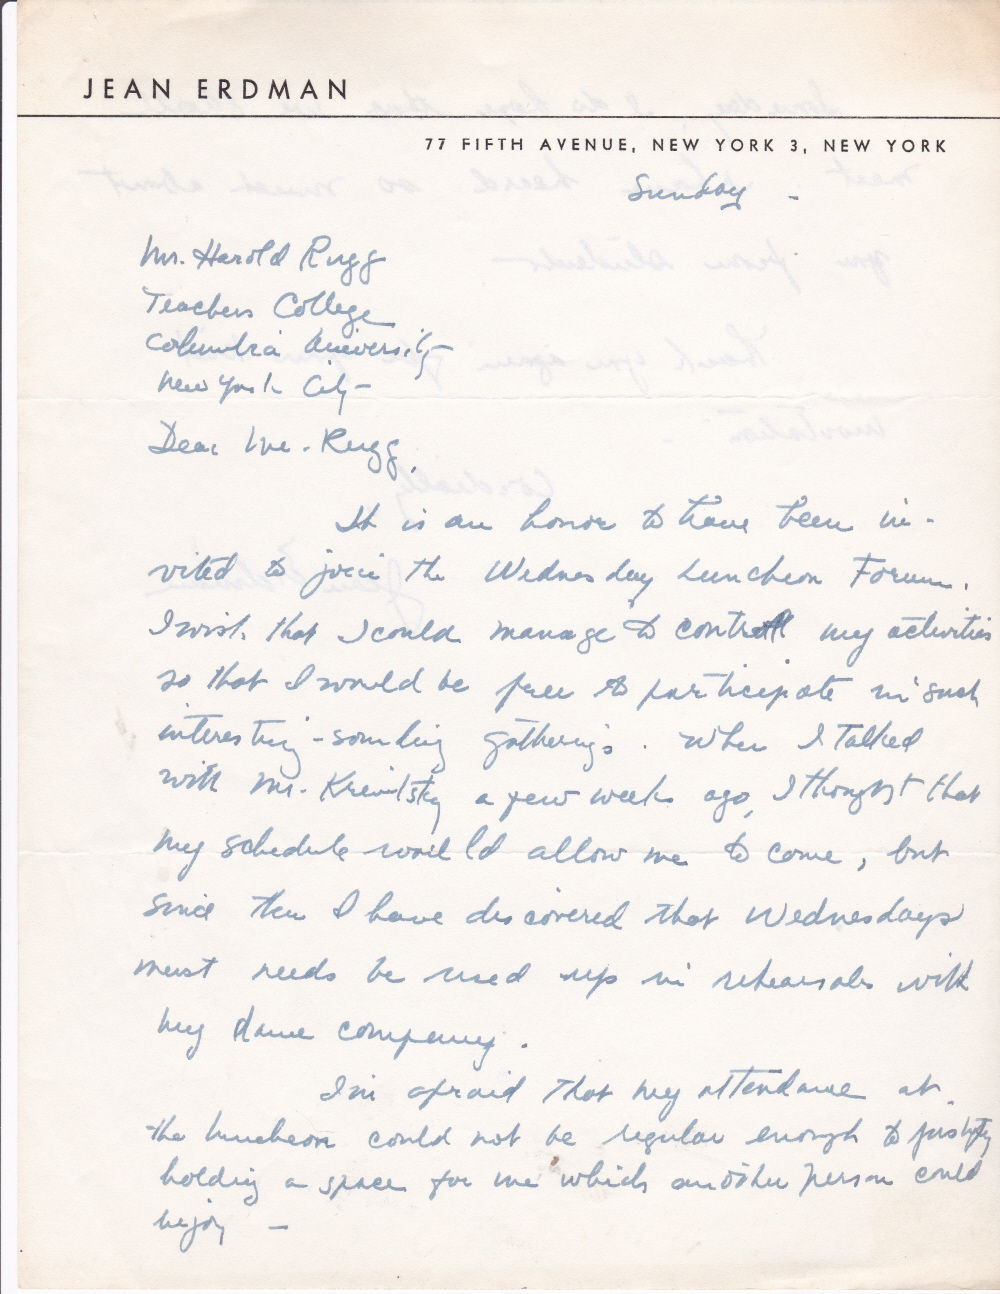 JEAN ERDMAN
77 FIFTH AVENUE, NEW YORK 3, NEW YORK
Sunday -
Mr. Harold Rugg
Teachers College
Columbia University
New York City -
Dear Mr. Rugg,
It is an honor to have been in-
vited to join the Wednesday Luncheon Forum.
I wish that I could manage to control my activities
so that I would be free to participate in such
interesting-sounding gatherings. When I talked
with Mr. a few weeks ago, I thought that
my schedule would allow me to come, but
since then I have discovered that Wednesdays
must needs be used up in rehearsals with
my dance company.
I'm afraid that my attendance at
the luncheon could not be regular enough to justify
holding a space for me which another person could
enjoy -